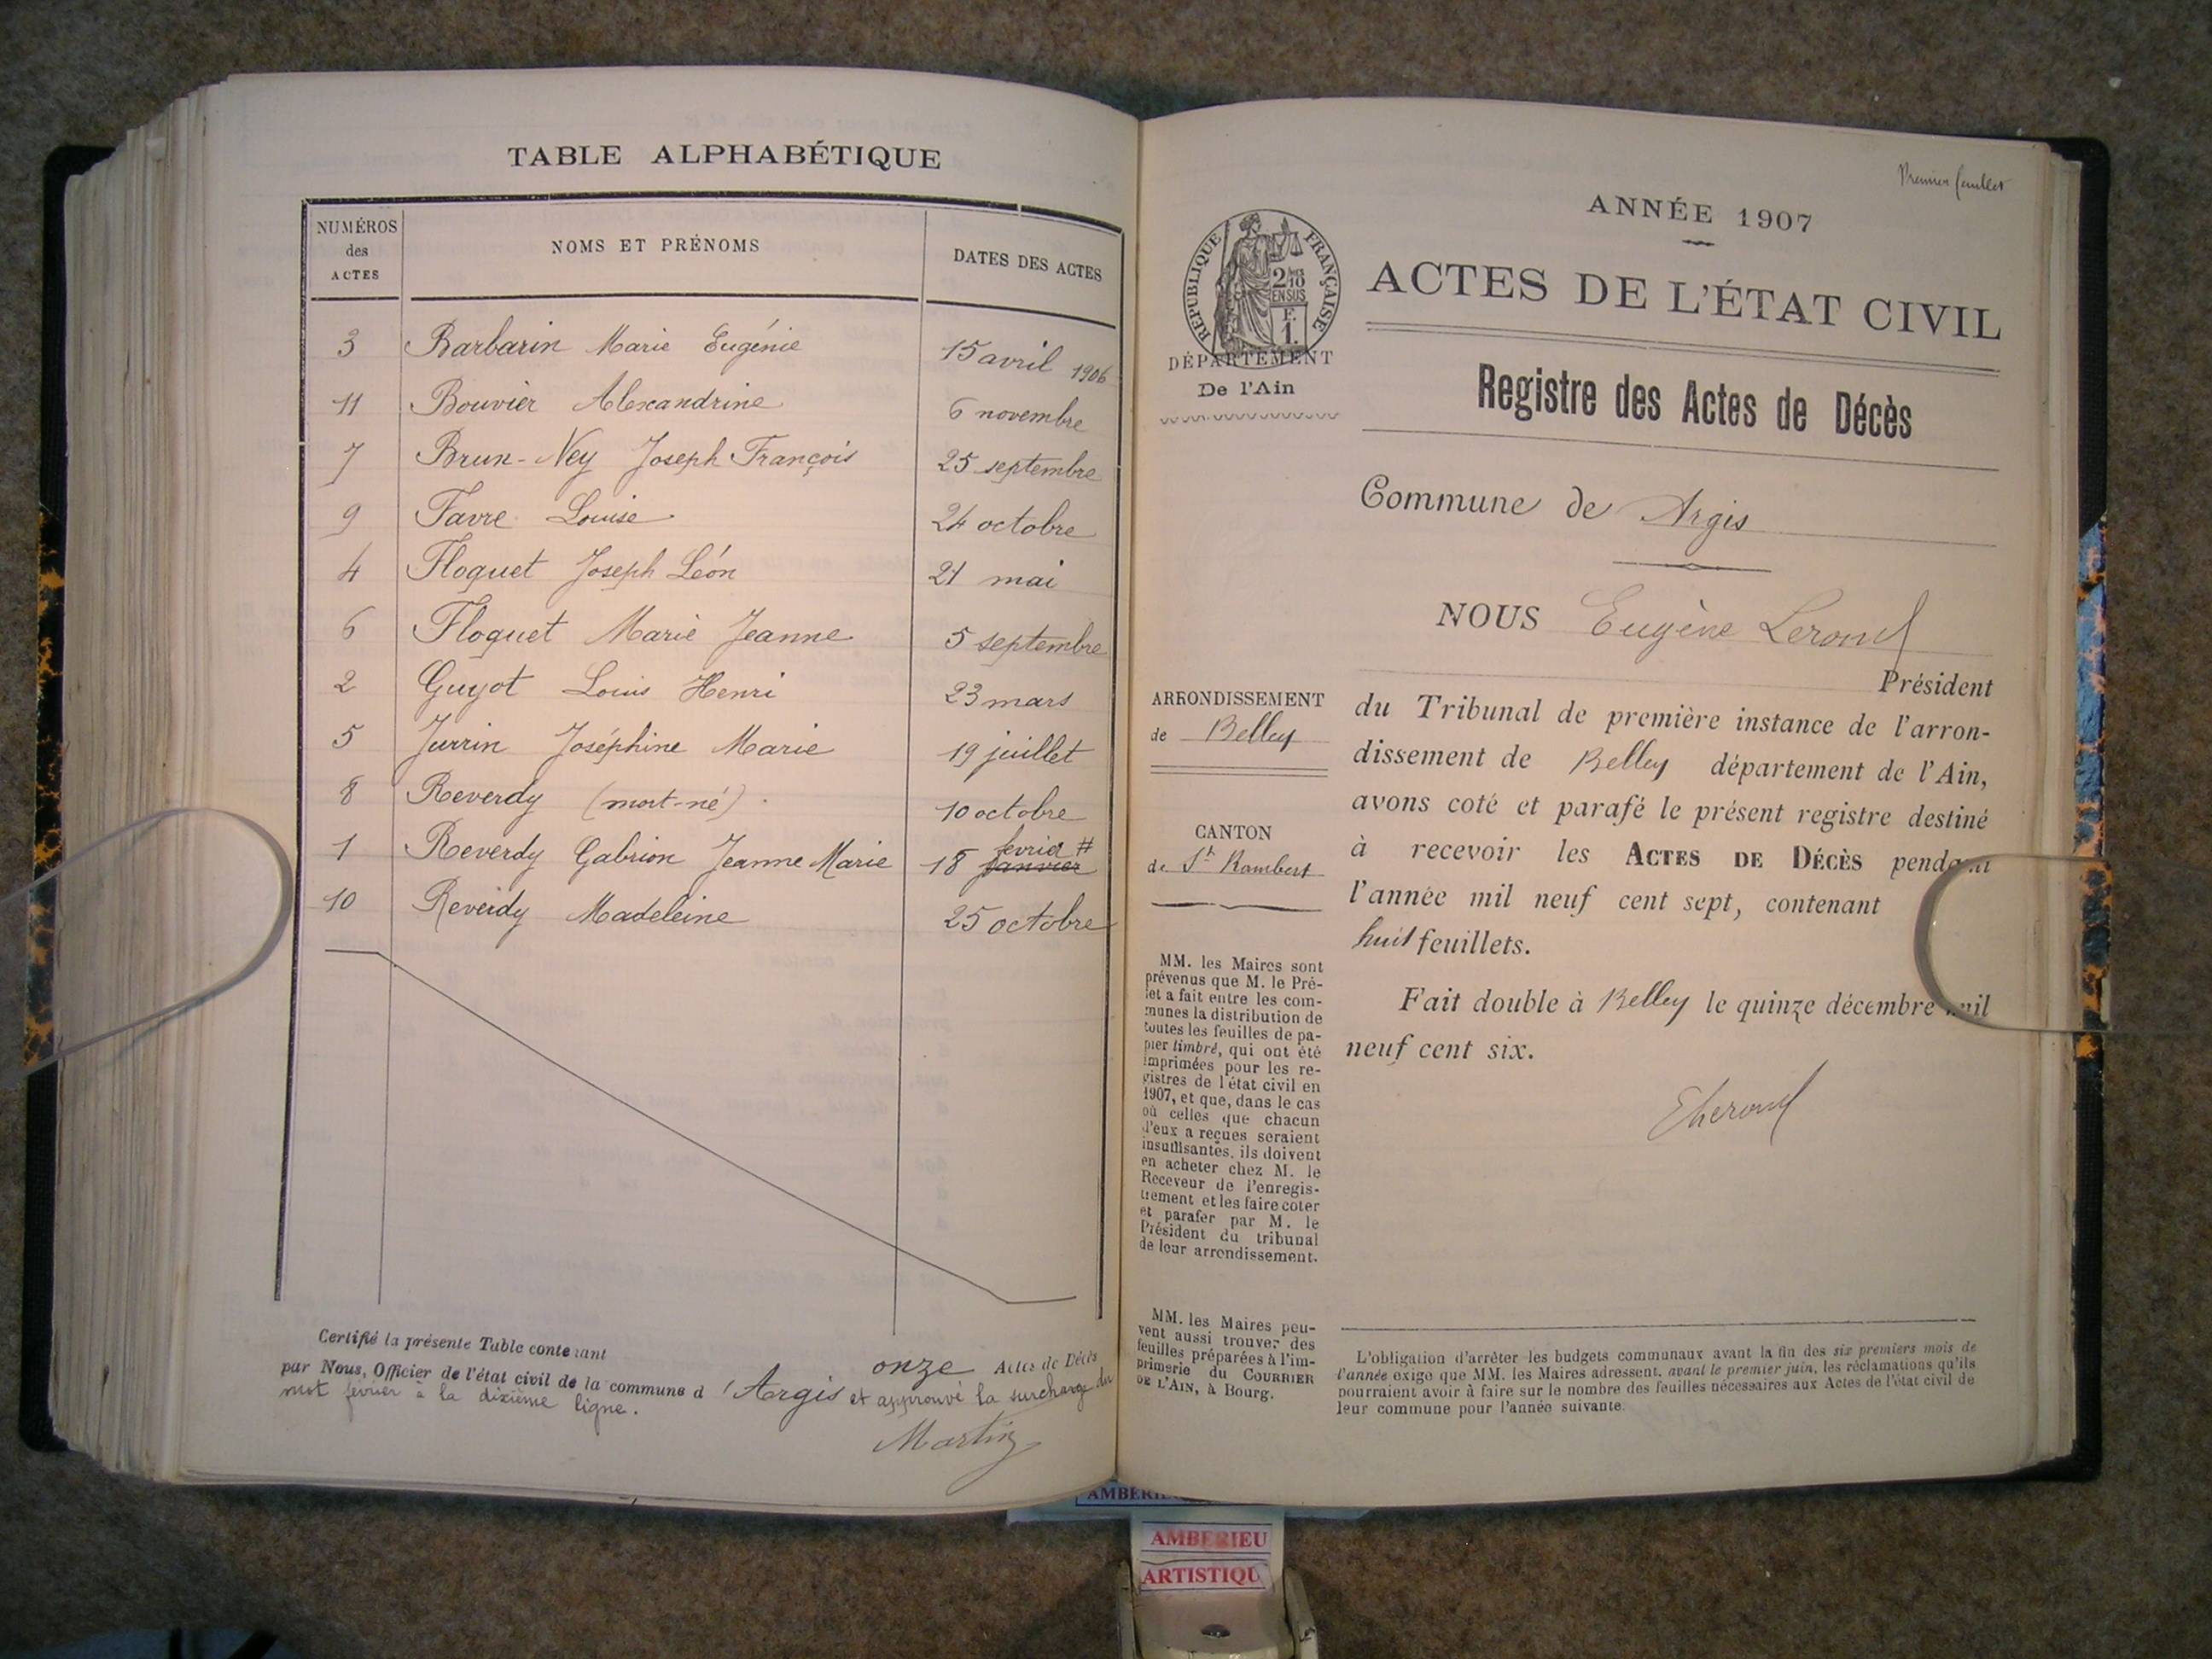 TABLE ALPHABÉTIQUE
NUMÉROS des ACTES NOMS ET PRÉNOMS DATES DES ACTES
3 Barbarin Marie Eugénie 15 avril 1906
11 Bouvier Alexandrine 6 novembre
7 Brun-Ney Joseph François 25 septembre
9 Favre Louise 24 octobre
4 Floquet Joseph Léon 21 mai
6 Floquet Marie Jeanne 5 septembre
2 Guyot Louis Henri 23 mars
5 Jurrin Joséphine Marie 19 juillet
8 Reverdy (mort-né) 10 octobre
1 Reverdy Gabrion Jeanne Marie 18 janvier février #
10 Reverdy Madeleine 25 octobre
Certifié la présente Table contenant onze Actes de Décès
par Nous, Officier de l'état civil de la commune d'Argis et approuvé la surcharge du
mot février à la dixième ligne.
Martin
Premier feuillet
ANNÉE 1907
RÉPUBLIQUE FRANÇAISE
2/10
EN SUS
F.
1.
ACTES DE L'ÉTAT CIVIL
DÉPARTEMENT
De l'Ain
Registre des Actes de Décès
Commune de Argis
NOUS Eugène
Président
ARRONDISSEMENT
de Belley
du Tribunal de première instance de l'arron-
dissement de Belley département de l'Ain,
avons coté et parafé le présent registre destiné
à recevoir les ACTES DE DÉCÈS pendant
l'année mil neuf cent sept, contenant
huit feuillets.
CANTON
de St Rambert
Fait double à Belley le quinze décembre mil
neuf cent six.
MM. les Maires sont
prévenus que M. le Pré-
fet a fait entre les com-
munes la distribution de
toutes les feuilles de pa-
pier timbré, qui ont été
imprimées pour les re-
gistres de l'état civil en
1907, et que, dans le cas
où celles que chacun
d'eux a reçues seraient
insuffisantes, ils doivent
en acheter chez M. le
Receveur de l'enregis-
trement et les faire coter
et parafer par M. le
Président du tribunal
de leur arrondissement.
MM. les Maires peu-
vent aussi trouver des
feuilles préparées à l'im-
primerie du COURRIER
DE L'AIN, à Bourg.
L'obligation d'arrêter les budgets communaux avant la fin des six premiers mois de
l'année exige que MM. les Maires adressent, avant le premier juin, les réclamations qu'ils
pourraient avoir à faire sur le nombre des feuilles nécessaires aux Actes de l'état civil de
leur commune pour l'année suivante.
AMBERIEU
ARTISTIQU